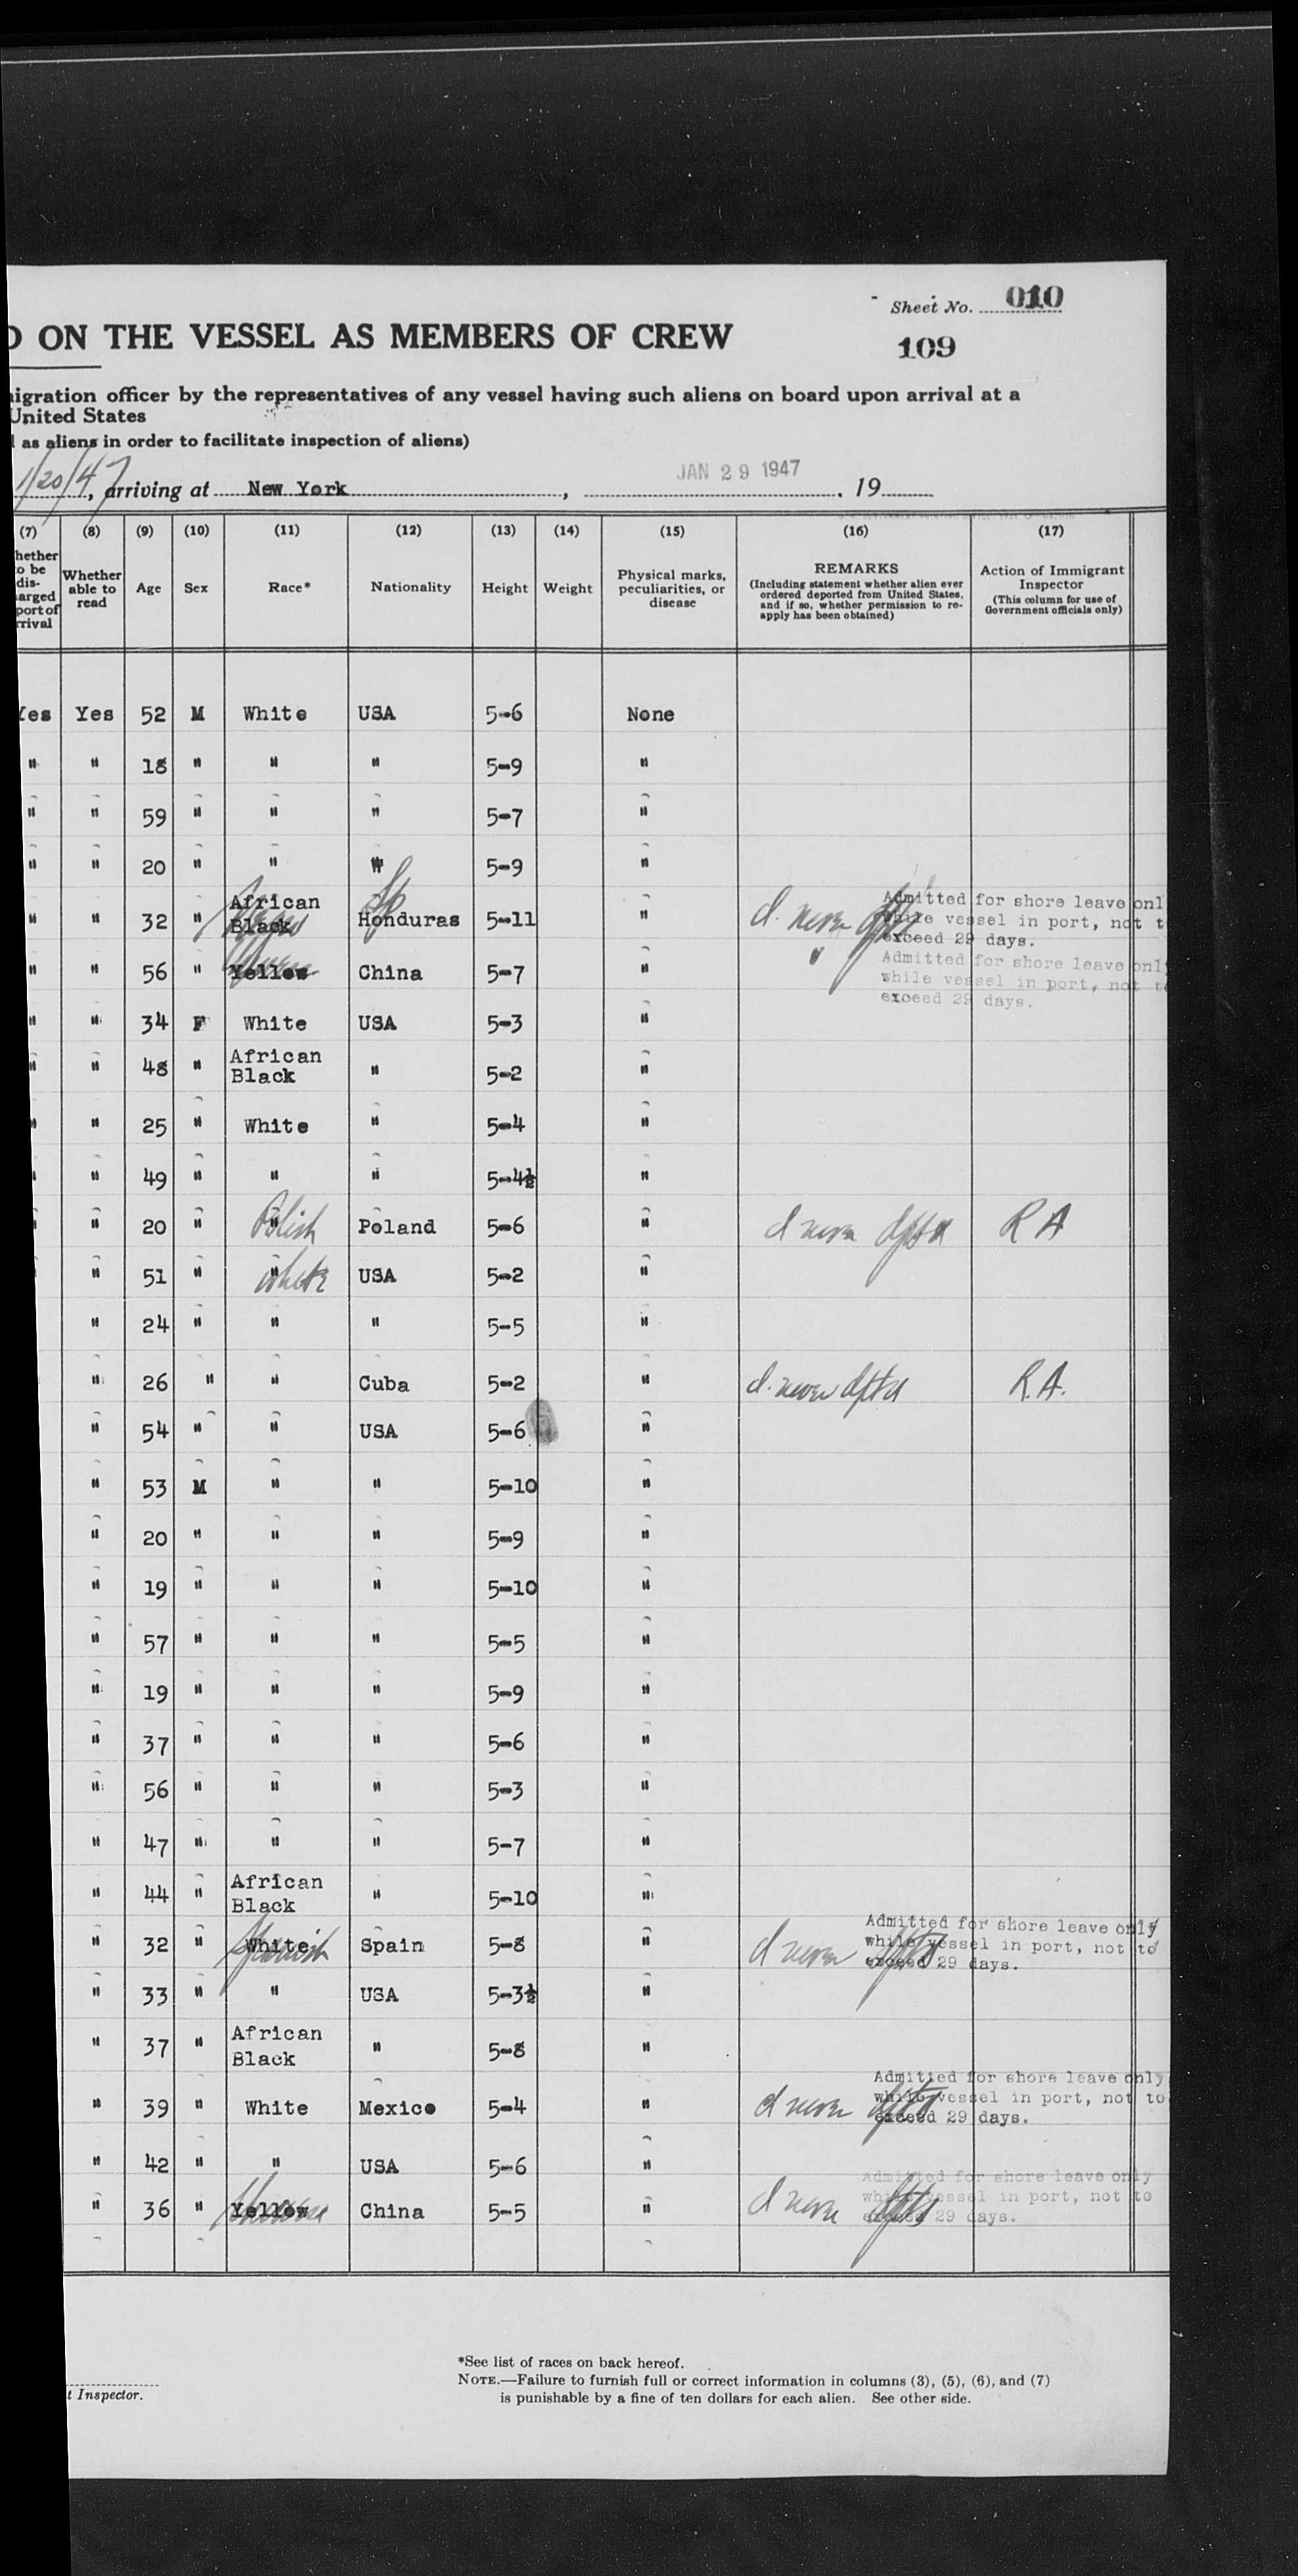 Sheet No. 010
ON THE VESSEL AS MEMBERS OF CREW
109
igration officer by the representatives of any vessel having such aliens on board upon arrival at a
United States
as aliens in order to facilitate inspection of aliens)
1/20/47, arriving at New York, JAN 29 1947, 19
(7) (8) (9) (10) (11) (12) (13) (14) (15) (16) (17)
hether to be dis- arged port of rrival
Whether able to read
Age
Sex
Race*
Nationality
Height
Weight
Physical marks, peculiarities, or disease
REMARKS
(Including statement whether alien ever ordered deported from United States, and if so, whether permission to re- apply has been obtained)
Action of Immigrant Inspector
(This column for use of Government officials only)
Yes Yes 52 M White USA 5-6 None
" " 18 " " " 5-9 "
" " 59 " " " 5-7 "
" " 20 " " " 5-9 "
" " 32 " African Black Honduras 5-11 " d. never Admitted for shore leave onl
while vessel in port, not t
exceed 29 days.
" " 56 " Yellow China 5-7 " " Admitted for shore leave only
while vessel in port, not to
exceed 29 days.
" " 34 F White USA 5-3 "
" " 48 " African Black " 5-2 "
" " 25 " White " 5-4 "
" " 49 " " " 5-4½ "
" " 20 " " Polish Poland 5-6 " d never dptd R A
" " 51 " " White USA 5-2 "
" 24 " " " 5-5 "
" 26 " " Cuba 5-2 " d. never dptd R.A.
" 54 " " USA 5-6 "
" 53 M " " 5-10 "
" 20 " " " 5-9 "
" 19 " " " 5-10 "
" 57 " " " 5-5 "
" 19 " " " 5-9 "
" 37 " " " 5-6 "
" 56 " " " 5-3 "
" 47 " " " 5-7 "
" 44 " African Black " 5-10 "
" 32 " White Spanish Spain 5-8 " d never dptd Admitted for shore leave only
while vessel in port, not to
exceed 29 days.
" 33 " " USA 5-3½ "
" 37 " African Black " 5-8 "
" 39 " White Mexico 5-4 " d never dptd Admitted for shore leave only
while vessel in port, not to
exceed 29 days.
" 42 " " USA 5-6 "
" 36 " Yellow Chinese China 5-5 " d never dptd Admitted for shore leave only
while vessel in port, not to
exceed 29 days.
*See list of races on back hereof.
NOTE.—Failure to furnish full or correct information in columns (3), (5), (6), and (7)
is punishable by a fine of ten dollars for each alien. See other side.
t Inspector.